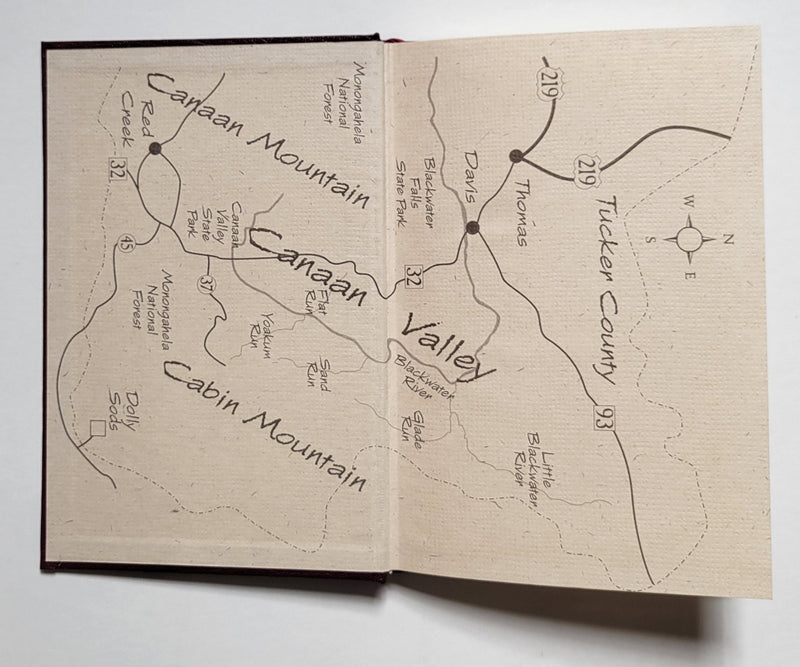 219
219
Thomas
Tucker County
W
N
S
E
Davis
Blackwater
Falls
State Park
32
93
Valley
Blackwater
River
Glade
Run
Little
Blackwater
River
Monongahela
National
Forest
Canaan Mountain
Canaan
Flat
Run
Yoakum
Run
Sand
Run
Canaan
Valley
State
Park
Red
Creek
32
45
37
Monongahela
National
Forest
Cabin Mountain
Dolly
Sods